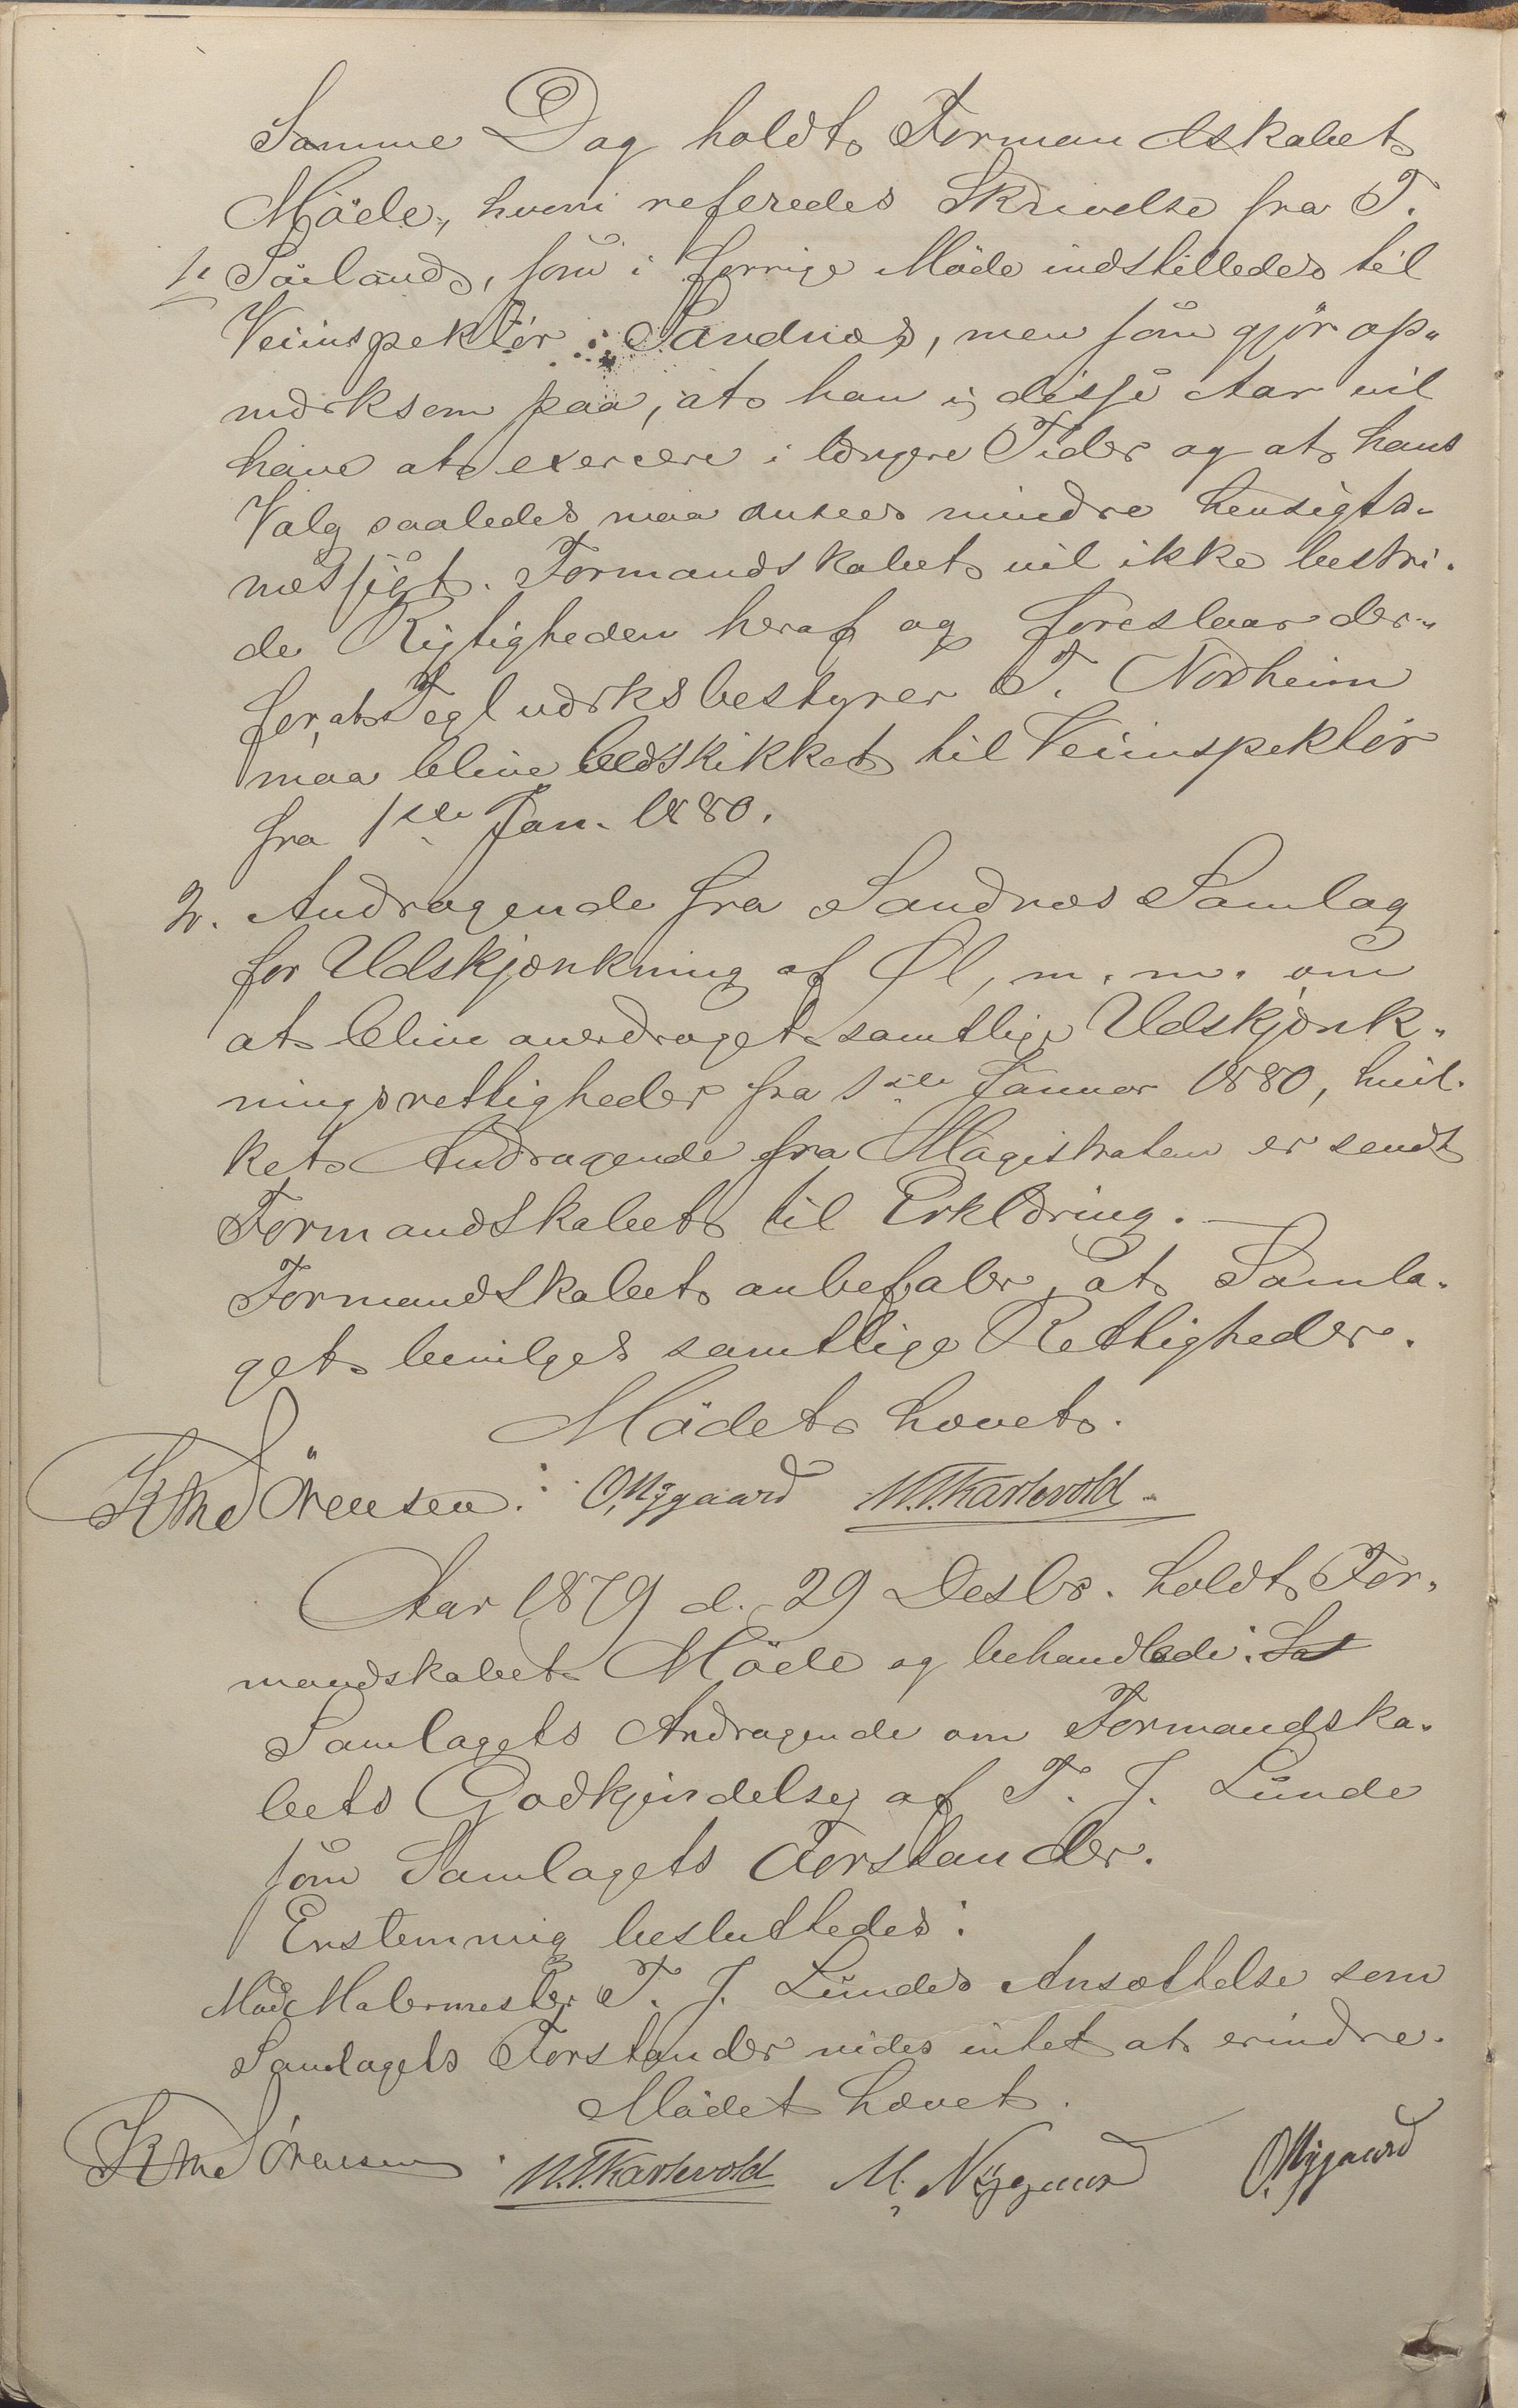 Samme Dag holdt Formandskabet
Möde, hvori referedes Skrivelse fra T.
1. Sœland, som i forrige Möde indstilledes til
Veiinspektör i Sandnæs, men som gjör op-
mærksom paa, at han i disse Aar vil
have at exercere i længere Tider og at hans
Valg saaledes maa ansees mindre hensigts-
mæssigt. Formandskabet vil ikke bestri-
de Rigtigheden heraf og foreslaar der-
for, at Teglværksbestyrer T. Nordheim
maa blive beskikket til Veiinspektör
fra 1ste Jan. 1880.
2. Andragende fra Sandnæs Samlag
for Udskjænkning af Øl, m. m. om
at blive overdraget samtlige Udskjænk-
ningsrettigheder fra 1ste Januar 1880, hvil-
ket Andragende fra Magistraten er sendt
Formandskabet til Erklæring. —
Formandskabet anbefaler, at Samla-
get bevilges samtlige Rettigheder.
Mödet hævet.
Sörensen. O. Nygaard M. T. Karlsvold
Aar 1879 d. 29 Desbr. holdt For-
mandskabet Möde og behandlede:
Samlagets Andragende om Formandska-
bets Godkjendelse af T. J. Lunde
som Samlagets Forstander.
Enstemmig besluttedes:
Mod Malermester T. J. Lundes Ansættelse som
Samlagets Forstander vides intet at erindre.
Mödet hævet.
Sörensen M. T. Karlsvold M. Nygaard O. Nygaard